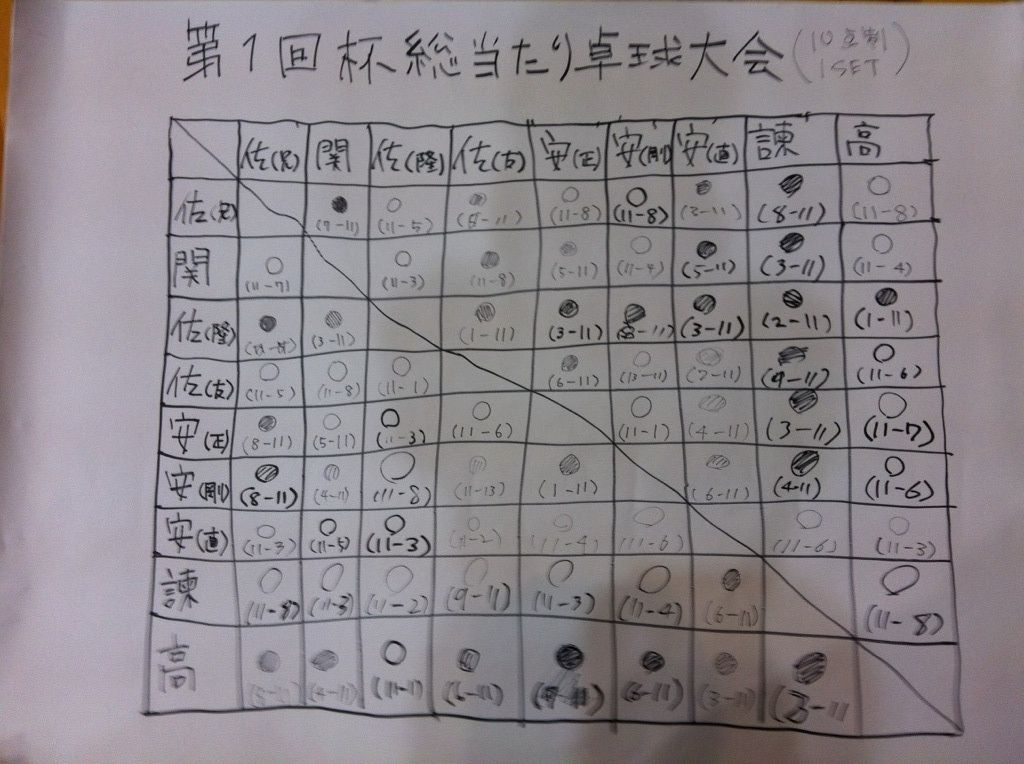 第1回杯総当たり卓球大会(10点制
1SET)
佐(兄) 関 佐(隆) 佐(友) 安(正) 安(剛) 安(直) 諫 高
佐(兄) ● ○ ● ○ ○ ● ● ○
(7-11) (11-5) (5-11) (11-8) (11-8) (3-11) (8-11) (11-8)
関 ○ ○ ● ● ○ ● ● ○
(11-7) (11-3) (11-8) (5-11) (11-4) (5-11) (3-11) (11-4)
佐(隆) ● ● ● ● ● ● ● ●
(3-11) (1-11) (3-11) (3-11) (2-11) (1-11)
佐(友) ○ ○ ○ ● ○ ● ● ○
(11-5) (11-8) (11-1) (6-11) (13-11) (2-11) (9-11) (11-6)
安(正) ● ○ ○ ○ ○ ● ● ○
(8-11) (5-11) (11-3) (11-6) (11-1) (4-11) (3-11) (11-7)
安(剛) ● ● ○ ● ● ● ● ○
(8-11) (4-11) (11-8) (11-13) (1-11) (6-11) (4-11) (11-6)
安(直) ○ ○ ○ ○ ○ ○ ○ ○
(11-3) (11-5) (11-3) (11-2) (11-4) (11-6) (11-6) (11-3)
諫 ○ ○ ○ ○ ○ ○ ● ○
(11-8) (11-3) (11-2) (9-11) (11-3) (11-4) (6-11) (11-8)
高 ● ● ○ ● ● ● ● ●
(4-11) (11-1) (6-11) (6-11) (3-11)